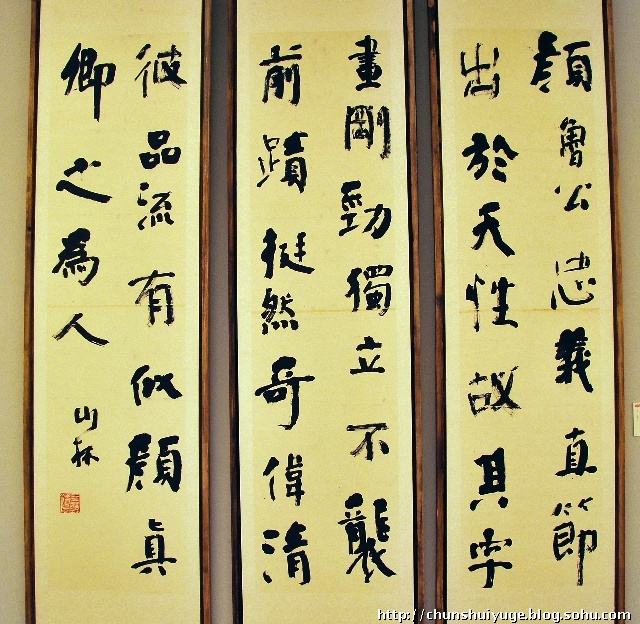 顔魯公忠義直節
出於天性故其字
畫剛勁獨立不襲
前蹟挺然奇偉清
彼品流有似顔真
卿之為人
山林
http://chunshuiyuge.blog.sohu.com